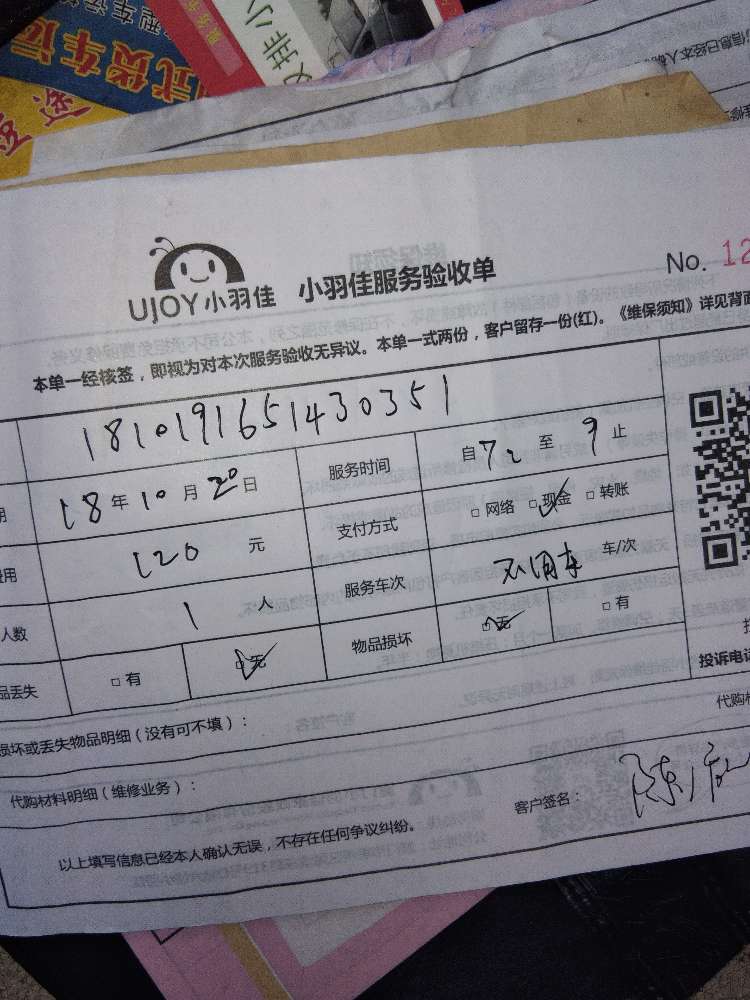 式货车运
小羽佳服务验收单
UJOY小羽佳
No. 12
本单一经核签，即视为对本次服务验收无异议。本单一式两份，客户留存一份(红)。《维保须知》详见背面
1810191651430351
18年10月20日
服务时间
自7 至 9 止
费用
120 元
支付方式
□ 网络 □ 现金 □ 转账
人数
1 人
服务车次
不用车 车/次
品丢失
□ 有 □ 无
物品损坏
□ 无 □ 有
投诉电话
损坏或丢失物品明细（没有可不填）：
代购材
代购材料明细（维修业务）：
客户签名：
陈
以上填写信息已经本人确认无误，不存在任何争议纠纷。